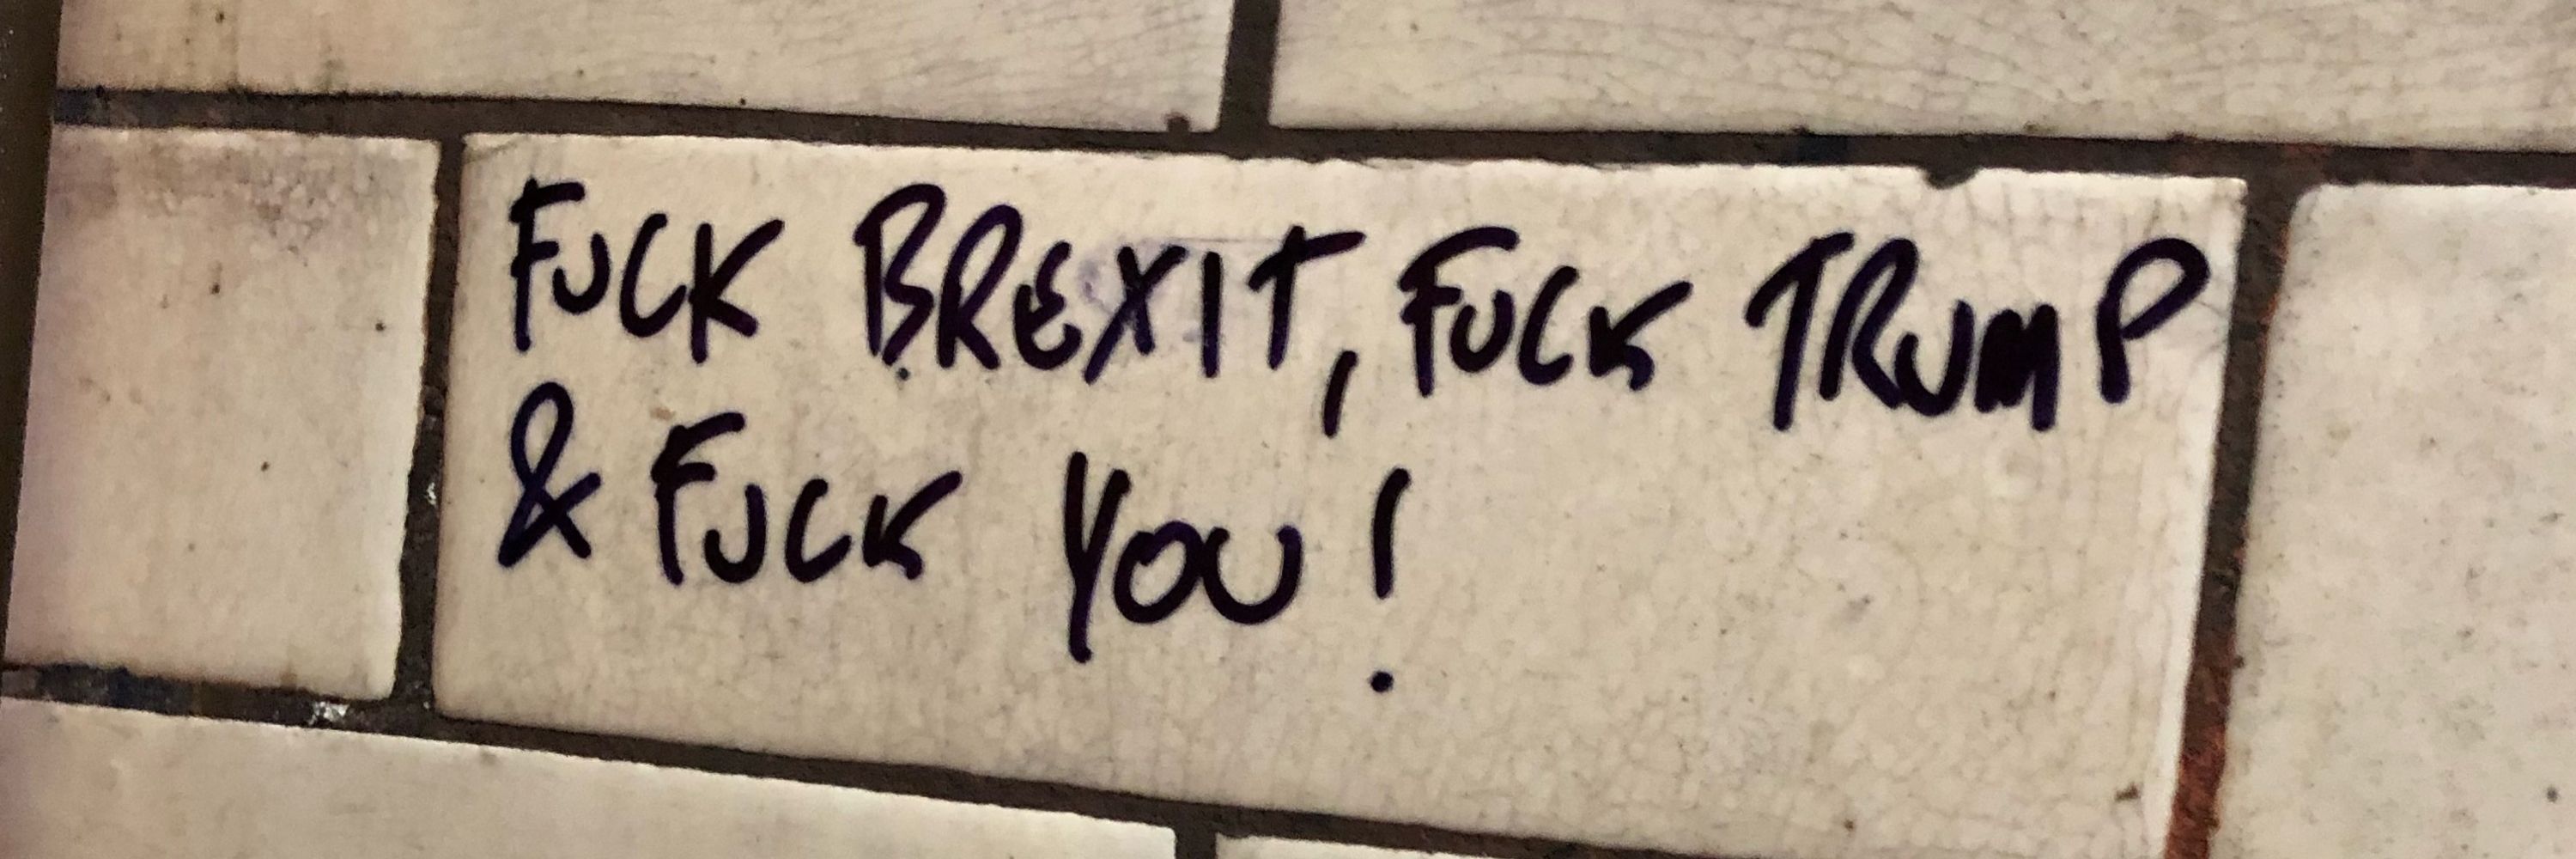 FUCK BREXIT, FUCK TRUMP
& FUCK YOU!